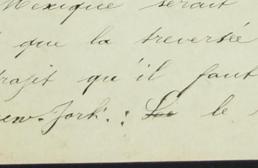 Mexique serait
que la traversée
trajet qu'il faut
New-York. : Le le